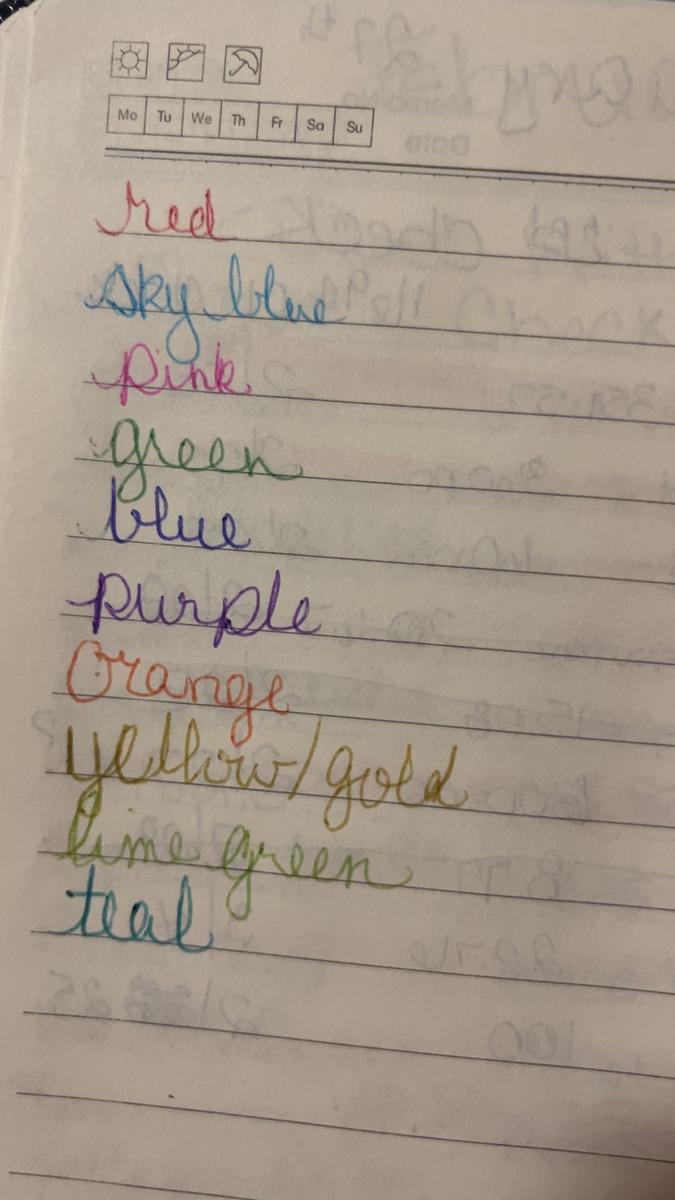 Mo Tu We Th Fr Sa Su
red
sky blue
pink
green
blue
purple
Orange
yellow/gold
lime green
teal